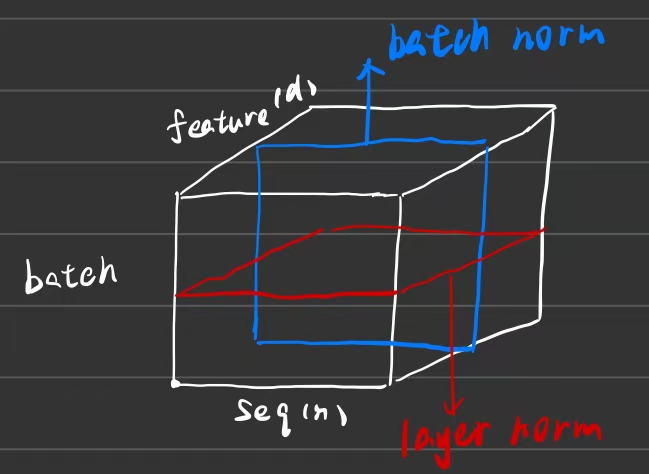 batch norm
feature (d)
batch
seq (n)
layer norm